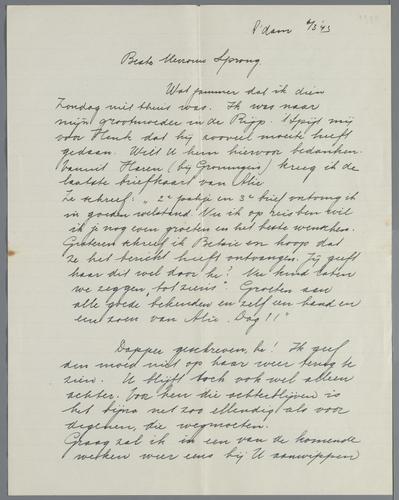 P'dam 6/3 '43
Beste Mevrouw Sprong.
Wat jammer dat ik dien
Zondag niet thuis was. Ik was naar
mijn grootmoeder in de Rijp. 't Spijt mij
voor Henk dat hij zooveel moeite heeft
gedaan. Wilt U hem hiervoor bedanken.
Vanuit Haren (bij Groningen) kreeg ik de
laatste briefkaart van Alie.
Ze schreef: „2e pakje en 3e brief ontving ik
in goeden welstand. Nu ik op reis ben wil
ik je nog even groeten en het beste wenschen.
Gisteren schreef ik Betsie en hoop dat
ze het bericht heeft ontvangen. Jij geeft
haar dit wel door hè? Nu kind laten
we zeggen „tot ziens". Groeten aan
alle goede bekenden en zelf een hand en
een zoen van Alie. Dag!!"
Dapper geschreven, hè! Ik geef
den moed niet op haar weer terug te
zien. U blijft toch ook wel alleen
achter. Voor hen die achterblijven is
het bijna net zoo ellendig als voor
degenen, die wegmoeten.
Graag zal ik in een van de komende
weken weer eens bij U aanwippen